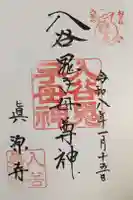 令和八年一月十五日
入谷鬼子母尊神
眞源寺
入谷鬼
子母神